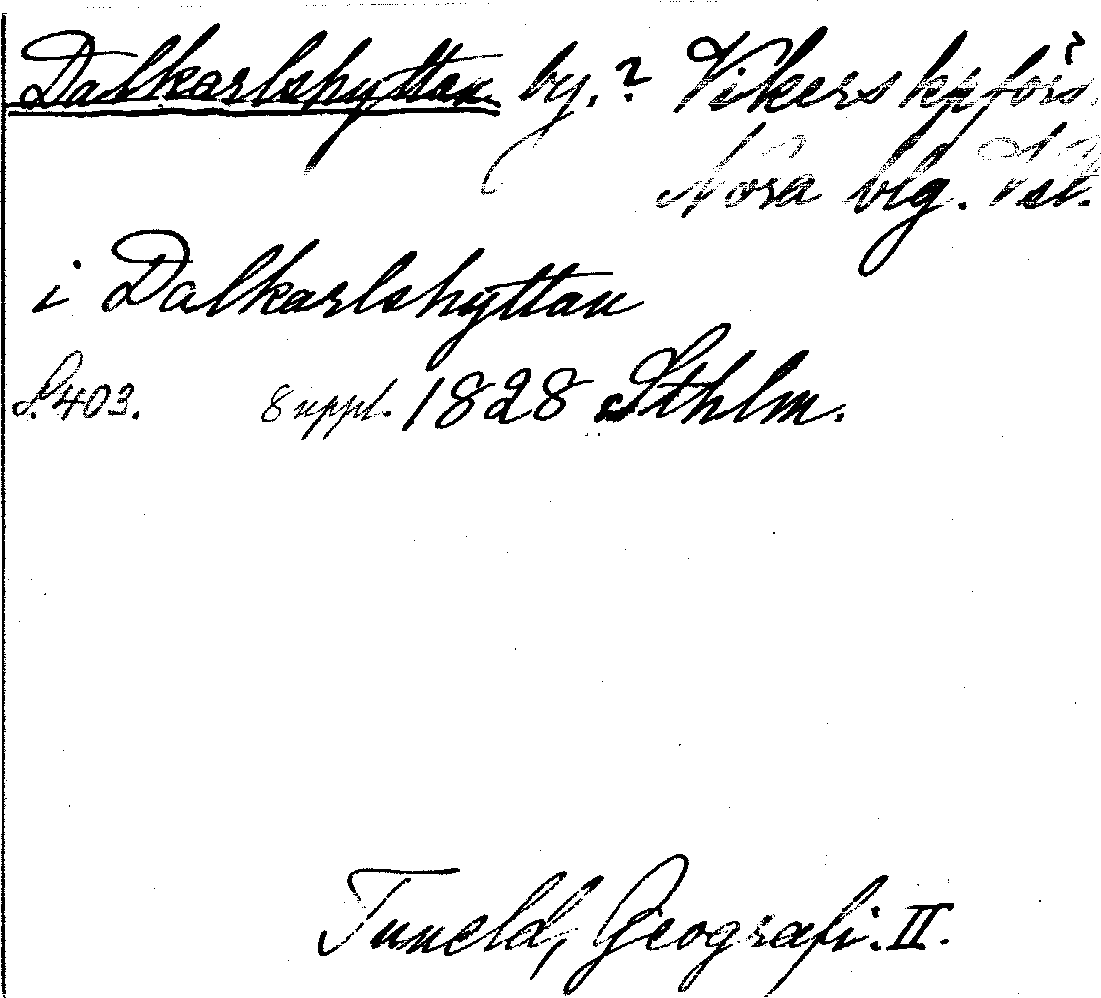 Dalkarlshyttan by.? Vikers kpförs.
Nora blg. Vsl.
i Dalkarlshyttan
S. 403. 8 uppl. 1828 Sthlm.
Tuneld, Geografi. II.